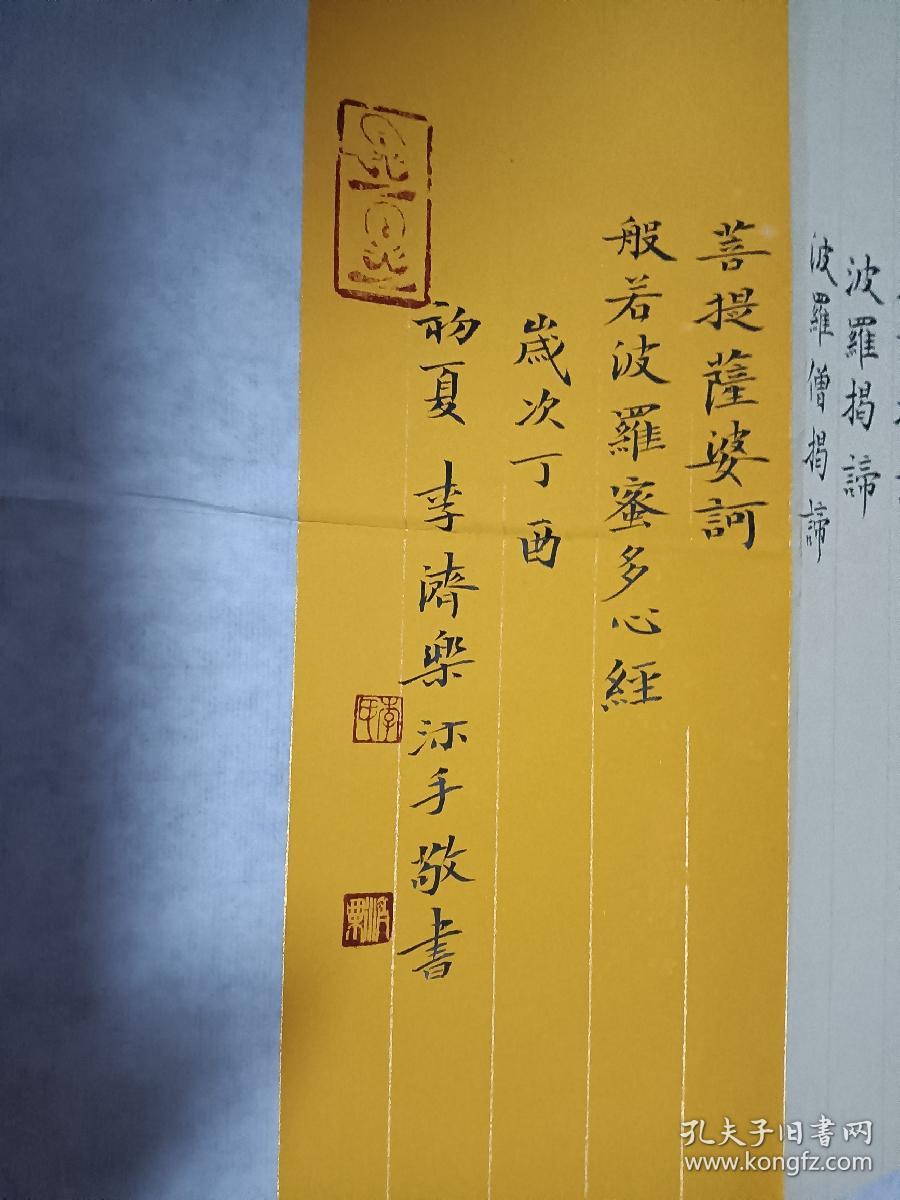 波羅揭諦
波羅僧揭諦
菩提薩婆訶
般若波羅蜜多心經
歲次丁酉
初夏 李濟樂沐手敬書
李
孔夫子旧书网
www.kongfz.com